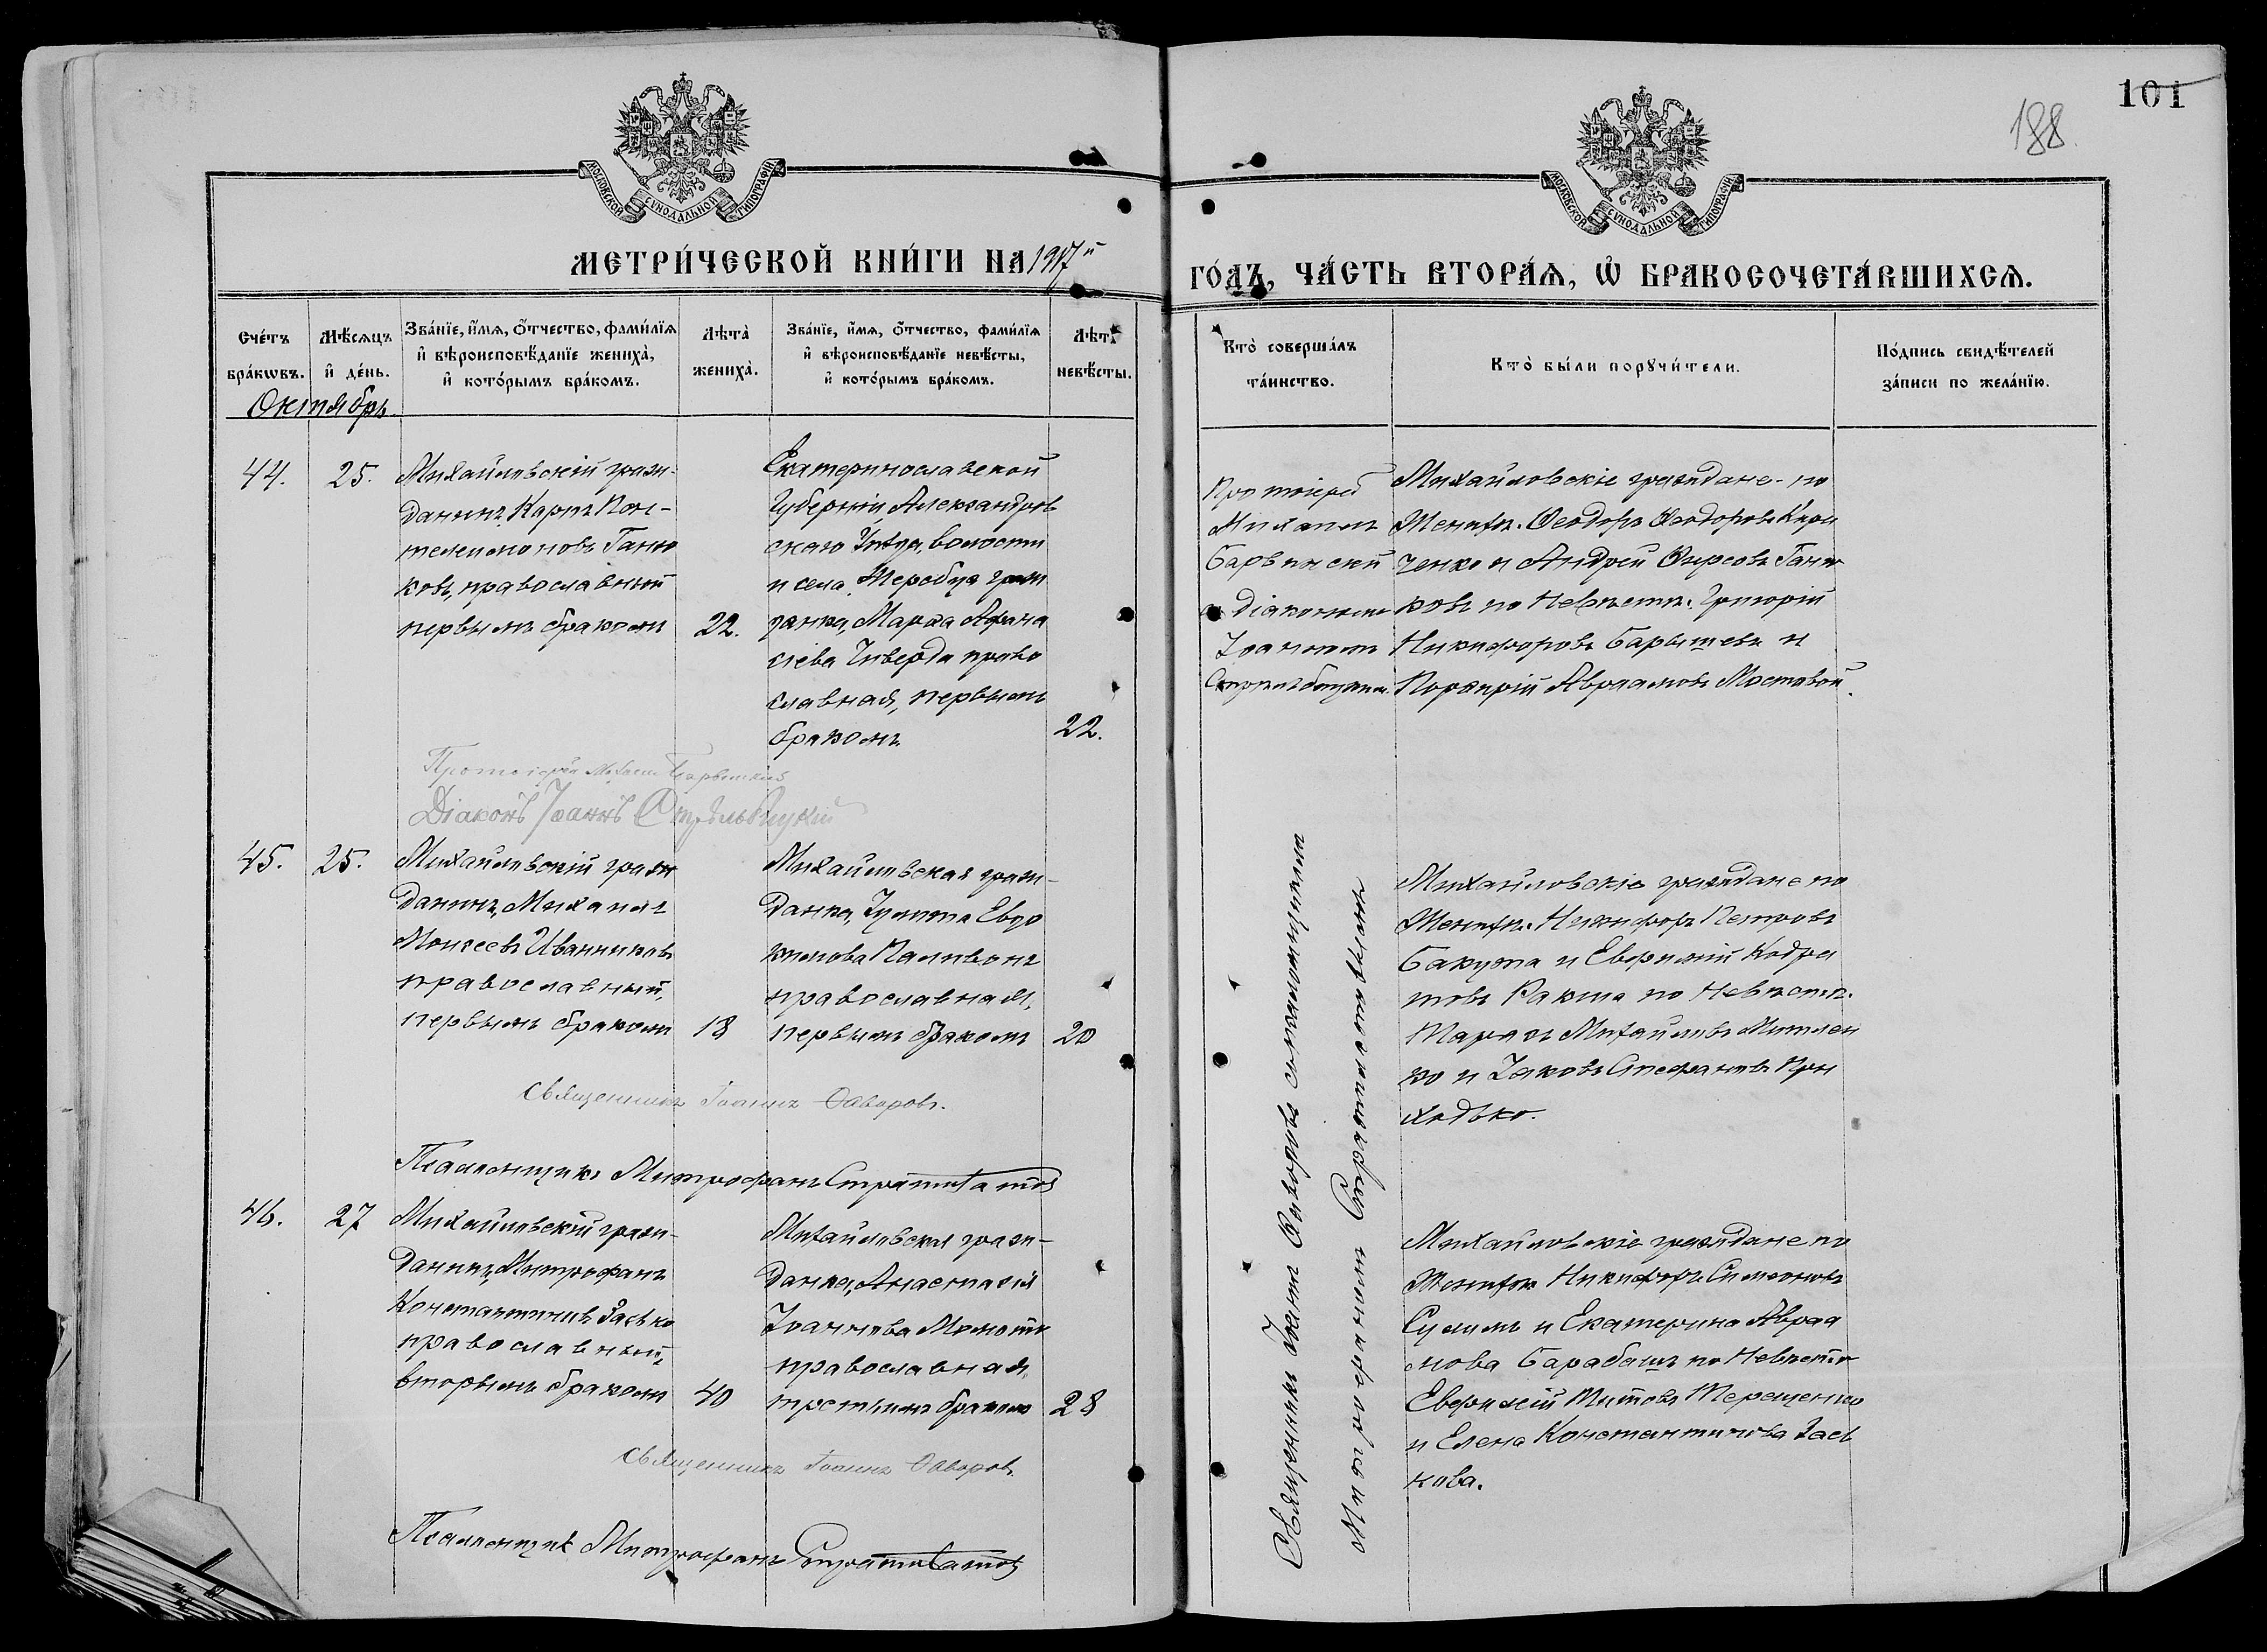 101
188.
МОСКОВСКОЙ СѴНОДАЛЬНОЙ ТИПОГРАФІИ
МОСКОВСКОЙ СѴНОДАЛЬНОЙ ТИПОГРАФІИ
МЕТРИ́ЧЕСКОЙ КНИ́ГИ НА 1917й
ГО́ДЪ, ЧА́СТЬ ВТОРА́Ѧ, Ѡ҆ БРАКОСОЧЕТА́ВШИХСѦ.
Сче́тъ
бра́кѡвъ.
Мѣ́сѧцъ
и҆ де́нь.
Зва́нїе, и҆́мѧ, ѻ҆́тчество, фами́лїѧ
и҆ вѣроисповѣ́данїе жениха̀,
и҆ кото́рымъ бра́комъ.
Лѣ́та̀
жениха̀.
Зва́нїе, и҆́мѧ, ѻ҆́тчество, фами́лїѧ
и҆ вѣроисповѣ́данїе невѣ́сты,
и҆ кото́рымъ бра́комъ.
Лѣ́та̀
невѣ́сты.
Кто̀ соверша́лъ
та́инство.
Кто̀ бы́ли порꙋчи́тели.
По́дпись свидѣ́телей
за́писи по жела́нїю.
Октябрь
44.
25.
Михайловскій граж-
данинъ, Карпъ Пан-
телеимоновъ Ганю
ковъ, православный
первымъ бракомъ
22.
Екатеринославской
Губерніи Александров
скаго Уѣзда, волости
и села Жеребца граж
данка, Марѳа Аѳана
сіева православная, первымъ
бракомъ
22.
Протоіерей
Михаилъ
и Діакономъ
Іоанномъ
Михайловскіе граждане - по
Женихѣ: Ѳеодоръ Ѳеодоровъ Кири
ченко и Андрей Фирсовъ Ганю
ковъ по Невѣстѣ: Григорій
Никифоровъ Барышевъ и
Порфирій Авраамовъ Мостовой.
Протоіерей Михаилъ
Діаконъ Іоаннъ Стрѣльбицкій
45.
25.
Михайловскій граж
данинъ, Михаилъ
Моисеевъ Иванниковъ
православный,
первымъ бракомъ
18
Михайловская граж-
данка, Евдо
кимова Паливона
православная,
первымъ бракомъ
20
Михайловскіе граждане по
Женихѣ: Никифоръ Петровъ
Бакута и Евфимій Кодра
товъ Ракша по Невѣстѣ:
Тарасъ Михайловъ Митлен
ко и Іаковъ Стефановъ При
ходько.
Священникъ Іоаннъ
Псаломщикъ Митрофанъ Стратилатовъ
46.
27
Михайловскій граж-
данинъ, Митрофанъ
Константиновъ Засько
православный,
вторымъ бракомъ
40
Михайловская граж-
данка, Анастасія
Іоаннова Момотъ
православная,
третьимъ бракомъ
28
Михайловскіе граждане по
Женихѣ Никифоръ Симеоновъ
Сулимъ и Екатерина Авраа
мова Барабашъ по Невѣстѣ
Евфимій Титовъ Терещенко
и Елена Константинова Зась
кова.
Священникъ Іоаннъ
Псаломщикъ Митрофанъ Стратилатовъ
Священникъ Іоаннъ съ псаломщикомъ
Митрофаномъ Стратилатовымъ